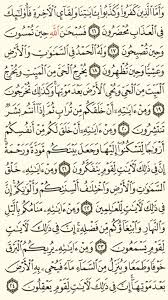 وَأَمَّا ٱلَّذِينَ كَفَرُوا۟ وَكَذَّبُوا۟ بِـَٔايَـٰتِنَا وَلِقَآئِ ٱلْـَٔاخِرَةِ فَأُو۟لَـٰٓئِكَ
فِى ٱلْعَذَابِ مُحْضَرُونَ ١٦ فَسُبْحَـٰنَ ٱللَّهِ حِينَ تُمْسُونَ
وَحِينَ تُصْبِحُونَ ١٧ وَلَهُ ٱلْحَمْدُ فِى ٱلسَّمَـٰوَٰتِ وَٱلْأَرْضِ
وَعَشِيًّا وَحِينَ تُظْهِرُونَ ١٨ يُخْرِجُ ٱلْحَىَّ مِنَ ٱلْمَيِّتِ وَيُخْرِجُ
ٱلْمَيِّتَ مِنَ ٱلْحَىِّ وَيُحْىِ ٱلْأَرْضَ بَعْدَ مَوْتِهَا وَكَذَٰلِكَ تُخْرَجُونَ
١٩ وَمِنْ ءَايَـٰتِهِۦٓ أَنْ خَلَقَكُم مِّن تُرَابٍ ثُمَّ إِذَآ أَنتُم بَشَرٌ
تَنتَشِرُونَ ٢٠ وَمِنْ ءَايَـٰتِهِۦٓ أَنْ خَلَقَ لَكُم مِّنْ أَنفُسِكُمْ
أَزْوَٰجًا لِّتَسْكُنُوٓا۟ إِلَيْهَا وَجَعَلَ بَيْنَكُم مَّوَدَّةً وَرَحْمَةً
إِنَّ فِى ذَٰلِكَ لَـَٔايَـٰتٍ لِّقَوْمٍ يَتَفَكَّرُونَ ٢١ وَمِنْ ءَايَـٰتِهِۦ خَلْقُ
ٱلسَّمَـٰوَٰتِ وَٱلْأَرْضِ وَٱخْتِلَـٰفُ أَلْسِنَتِكُمْ وَأَلْوَٰنِكُمْ إِنَّ
فِى ذَٰلِكَ لَـَٔايَـٰتٍ لِّلْعَـٰلِمِينَ ٢٢ وَمِنْ ءَايَـٰتِهِۦ مَنَامُكُم بِٱلَّيْلِ
وَٱلنَّهَارِ وَٱبْتِغَآؤُكُم مِّن فَضْلِهِۦٓ إِنَّ فِى ذَٰلِكَ لَـَٔايَـٰتٍ
لِّقَوْمٍ يَسْمَعُونَ ٢٣ وَمِنْ ءَايَـٰتِهِۦ يُرِيكُمُ ٱلْبَرْقَ
خَوْفًا وَطَمَعًا وَيُنَزِّلُ مِنَ ٱلسَّمَآءِ مَآءً فَيُحْىِۦ بِهِ ٱلْأَرْضَ
بَعْدَ مَوْتِهَآ إِنَّ فِى ذَٰلِكَ لَـَٔايَـٰتٍ لِّقَوْمٍ يَعْقِلُونَ ٢٤